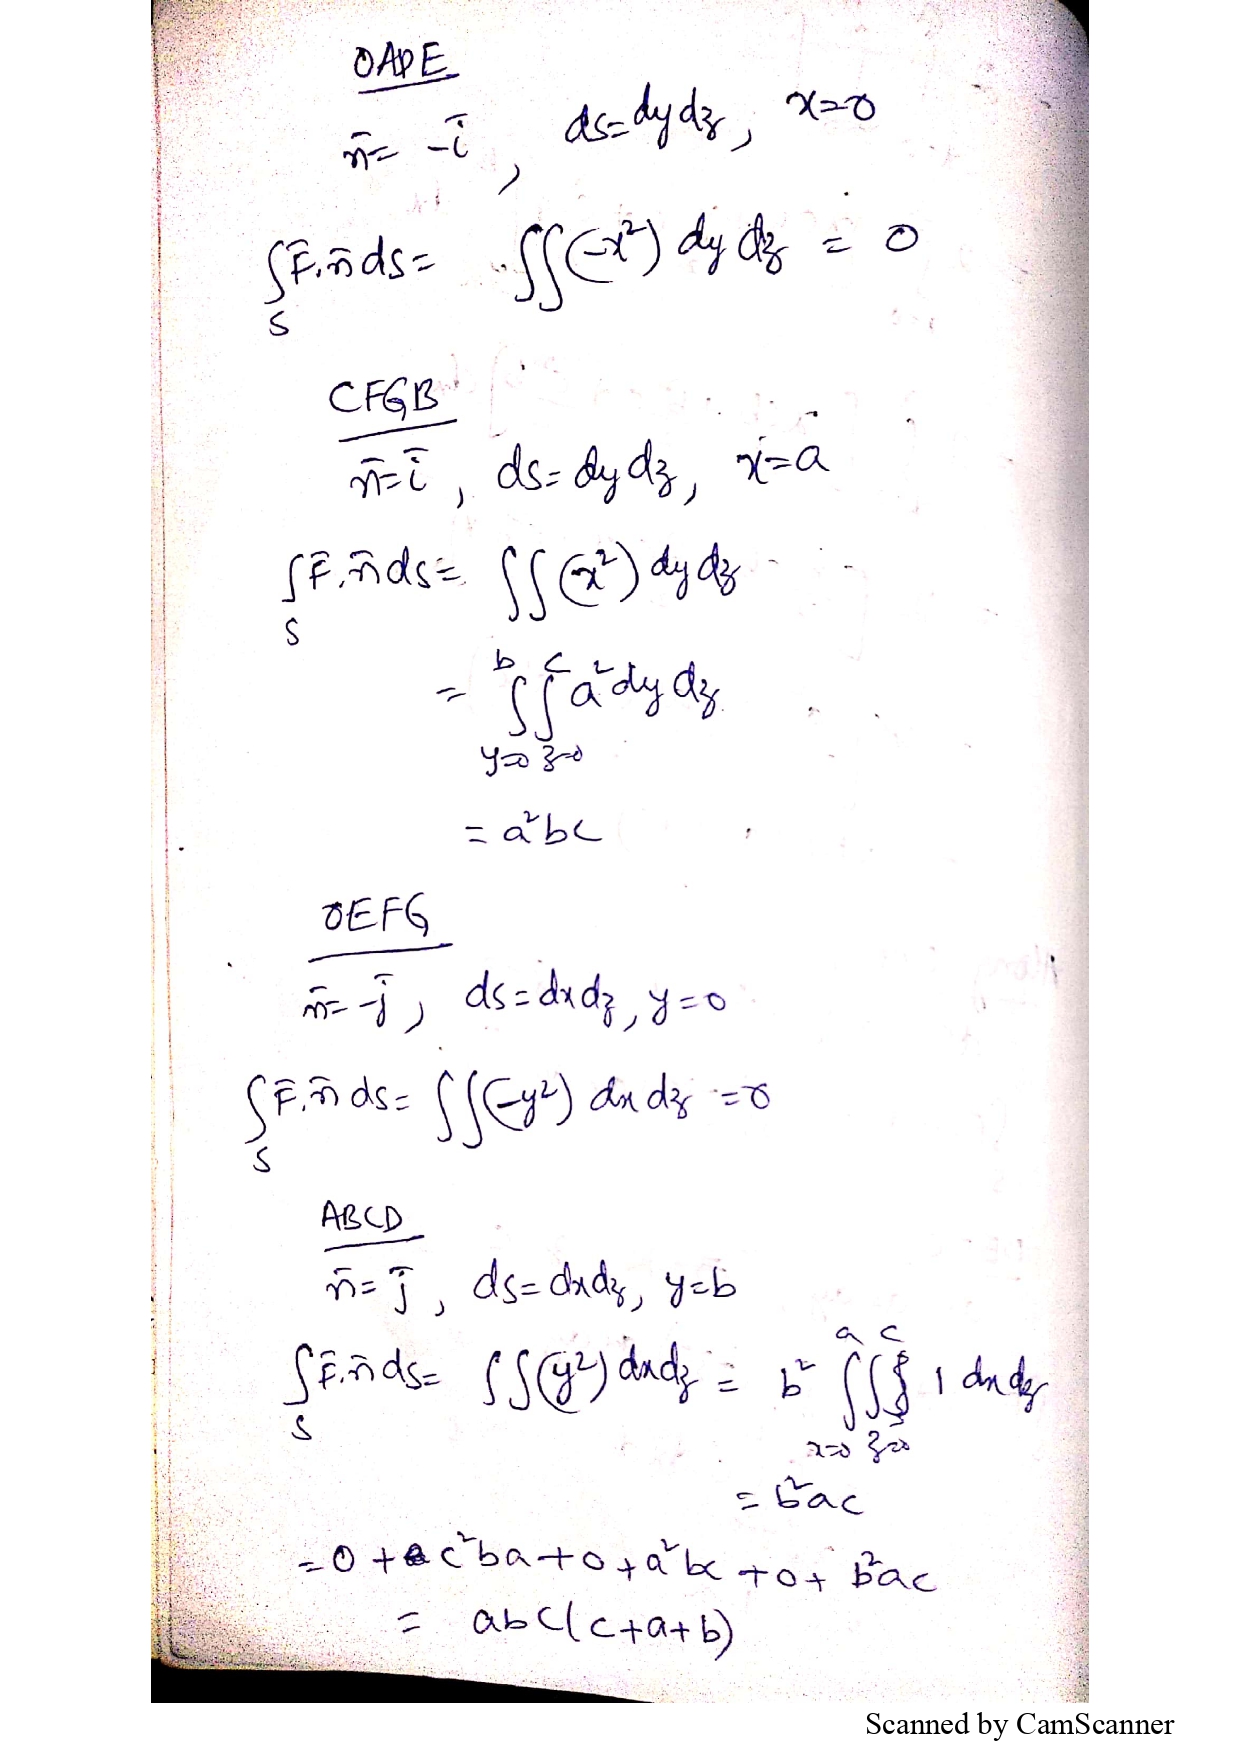 OADE
n̄ = -ī , ds = dy dz, x=0
∫_S F̄.n̄ ds = ∫∫(-x²) dy dz = 0
CFGB
n̄ = ī , ds = dy dz, x=a
∫_S F̄.n̄ ds = ∫∫(x²) dy dz
= ∫_{y=0}^{b} ∫_{z=0}^{c} a² dy dz
= a²bc
OEFG
n̄ = -j̄ , ds = dx dz, y=0
∫_S F̄.n̄ ds = ∫∫(-y²) dx dz = 0
ABCD
n̄ = j̄ , ds = dx dz, y=b
∫_S F̄.n̄ ds = ∫∫(y²) dx dz = b² ∫_{x=0}^{a} ∫_{z=0}^{c} 1 dx dz
= b²ac
= 0 + c²ba + 0 + a²bc + 0 + b²ac
= abc(c+a+b)
Scanned by CamScanner